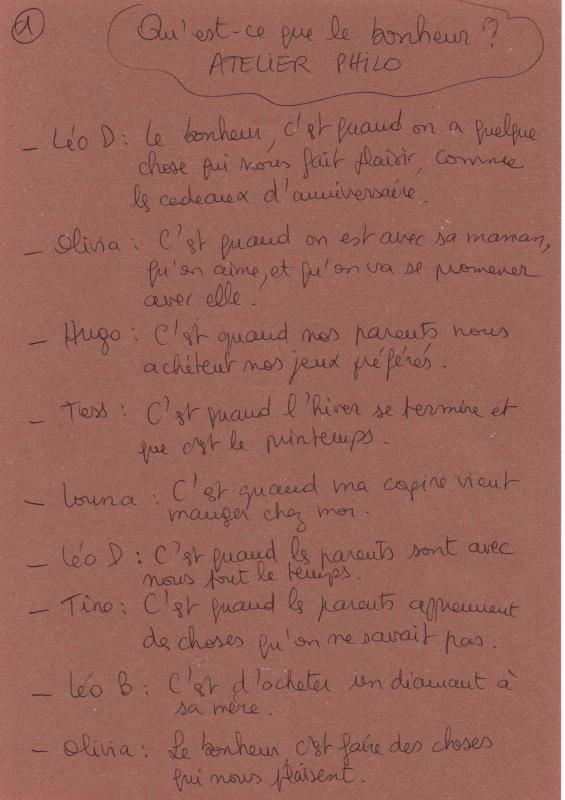 1
Qu'est-ce que le bonheur ?
ATELIER PHILO
- Léo D : Le bonheur, c'est quand on a quelque
chose qui nous fait plaisir, comme
les cadeaux d'anniversaire.
- Olivia : C'est quand on est avec sa maman,
qu'on aime, et qu'on va se promener
avec elle.
- Hugo : C'est quand nos parents nous
achètent nos jeux préférés.
- Tess : C'est quand l'hiver se termine et
que c'est le printemps.
- Louna : C'est quand ma copine vient
manger chez moi.
- Léo D : C'est quand les parents sont avec
nous tout le temps.
- Tino : C'est quand les parents apprennent
des choses qu'on ne savait pas.
- Léo B : C'est d'acheter un diamant à
sa mère.
- Olivia : Le bonheur, c'est faire des choses
qui nous plaisent.